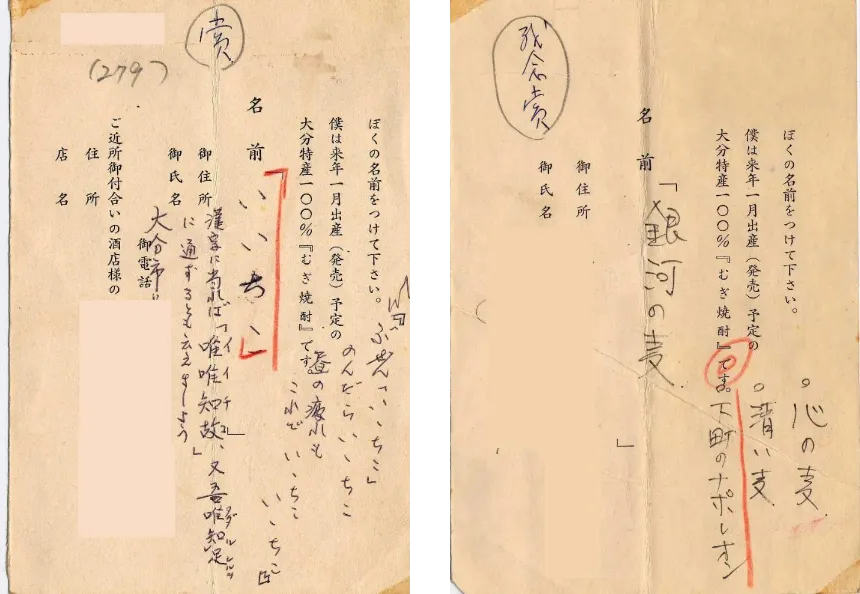 賞
(279)
ぼくの名前をつけて下さい。
僕は来年一月出産(発売)予定の
大分特産一〇〇%『むぎ焼酎』です。
ぶぜん「いいちこ」
のんだらいいちこ
昼の疲れも
これで いいちこ
いいちこ
名前
「いいちこ」
御住所
御氏名
漢字に当れば「唯唯知故」、又吾唯知足
に通ずるとも云えましょう」
大分市
御電話
ご近所御付合いの酒店様の
住所
店名
残念賞
ぼくの名前をつけて下さい。
僕は来年一月出産(発売)予定の
大分特産一〇〇%『むぎ焼酎』です。
。心の麦
。清い麦
下町のナポレオン
名前
「銀河の麦
」
御住所
御氏名